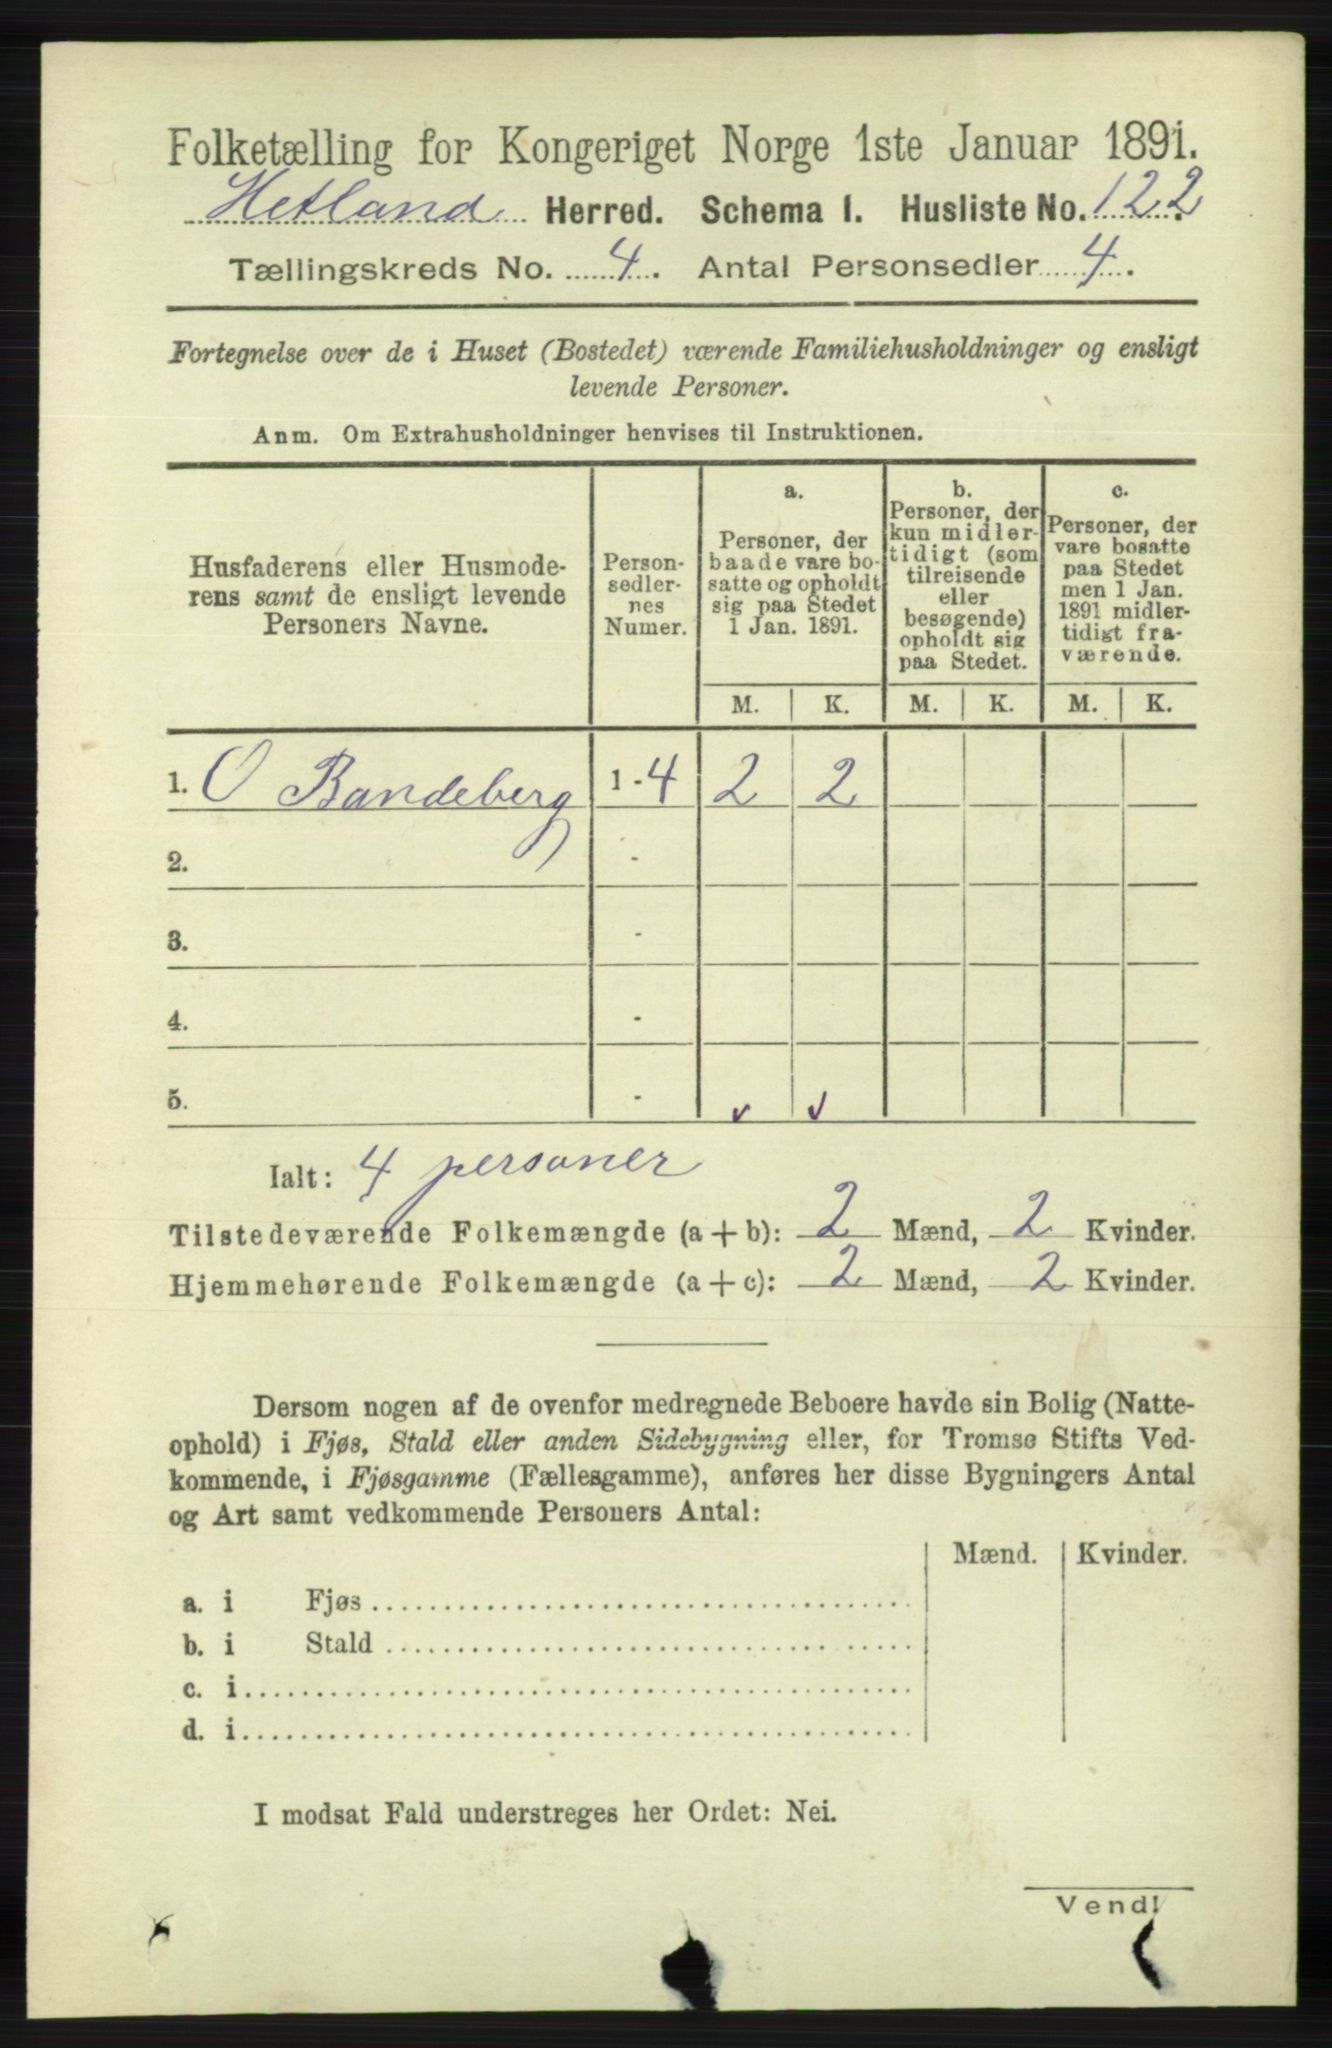 Folketælling for Kongeriget Norge 1ste Januar 1891.
Hetland Herred. Schema I. Husliste No. 122.
Tællingskreds No. 4. Antal Personsedler 4.
Fortegnelse over de i Huset (Bostedet) værende Familiehusholdninger og ensligt
levende Personer.
Anm. Om Extrahusholdninger henvises til Instruktionen.
Husfaderens eller Husmode-
rens samt de ensligt levende
Personers Navne.
Person-
sedler-
nes
Numer.
a.
Personer, der
baade vare bo-
satte og opholdt
sig paa Stedet
1 Jan. 1891.
b.
Personer, der
kun midler-
tidigt (som
tilreisende
eller
besøgende)
opholdt sig
paa Stedet.
c.
Personer, der
vare bosatte
paa Stedet
men 1 Jan.
1891 midler-
tidigt fra-
værende.
M. K. M. K. M. K.
1. O Bandeberg 1-4 2 2
2. -
3. -
4. -
5. -
Ialt: 4 personer
Tilstedeværende Folkemængde (a+b): 2 Mænd, 2 Kvinder.
Hjemmehørende Folkemængde (a+c): 2 Mænd, 2 Kvinder.
Dersom nogen af de ovenfor medregnede Beboere havde sin Bolig (Natte-
ophold) i Fjøs, Stald eller anden Sidebygning eller, for Tromsø Stifts Ved-
kommende, i Fjøsgamme (Fællesgamme), anføres her disse Bygningers Antal
og Art samt vedkommende Personers Antal:
Mænd. Kvinder.
a. i Fjøs
b. i Stald
c. i
d. i
I modsat Fald understreges her Ordet: Nei.
Vend!